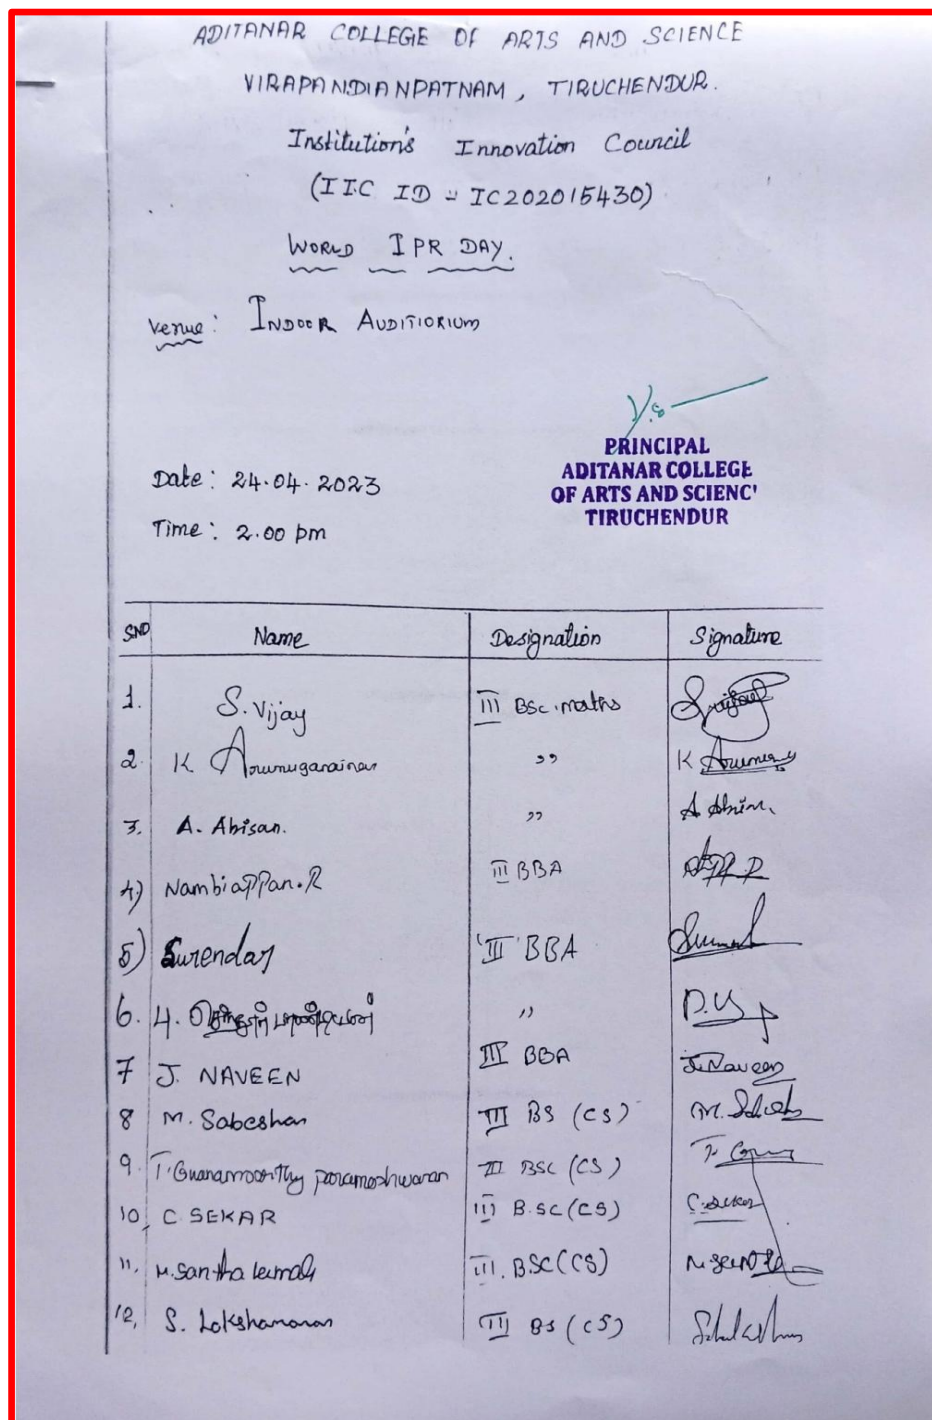 ADITANAR COLLEGE OF ARTS AND SCIENCE
VIRAPANDIANPATNAM, TIRUCHENDUR.
Institution's Innovation Council
(IIC ID - IC202015430)
WORLD IPR DAY.
Venue: INDOOR AUDITIORIUM
PRINCIPAL
ADITANAR COLLEGE
OF ARTS AND SCIENC'
TIRUCHENDUR
Date: 24.04.2023
Time: 2.00 pm
SNO Name Designation Signature
1. S. Vijay III BSc. maths
2. K ,, K
3. A. Abisan. ,, A
4) Nambiappan.R III BBA
5) Surendar III BBA
6. ,,
7 J. NAVEEN III BBA J. Naveen
8 M. Sabeshan III BS (CS) M.
9. T. parameshwaran III BSC (CS) T.
10, C. SEKAR III B.SC (CS) C. Sekar
11, M. Santha kumar III. BSC (CS)
12, S. Lakshmanan III BS (CS)